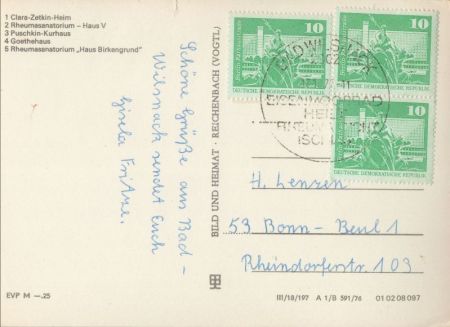 1 Clara-Zetkin-Heim
2 Rheumasanatorium – Haus V
3 Puschkin-Kurhaus
4 Goethehaus
5 Rheumasanatorium „Haus Birkengrund"
Schöne Grüße aus Bad-
Wilsnack sendet Euch
Gisela Fritze.
BILD UND HEIMAT · REICHENBACH (VOGTL)
10
DEUTSCHE DEMOKRATISCHE REPUBLIK
10
DEUTSCHE DEMOKRATISCHE REPUBLIK
10
DEUTSCHE DEMOKRATISCHE REPUBLIK
EISENMOORBAD
H. Lenzen
53 Bonn-Beul 1
Rheindorferstr. 103
EVP M —.25
III/18/197 A 1/B 591/76 01 02 08 087